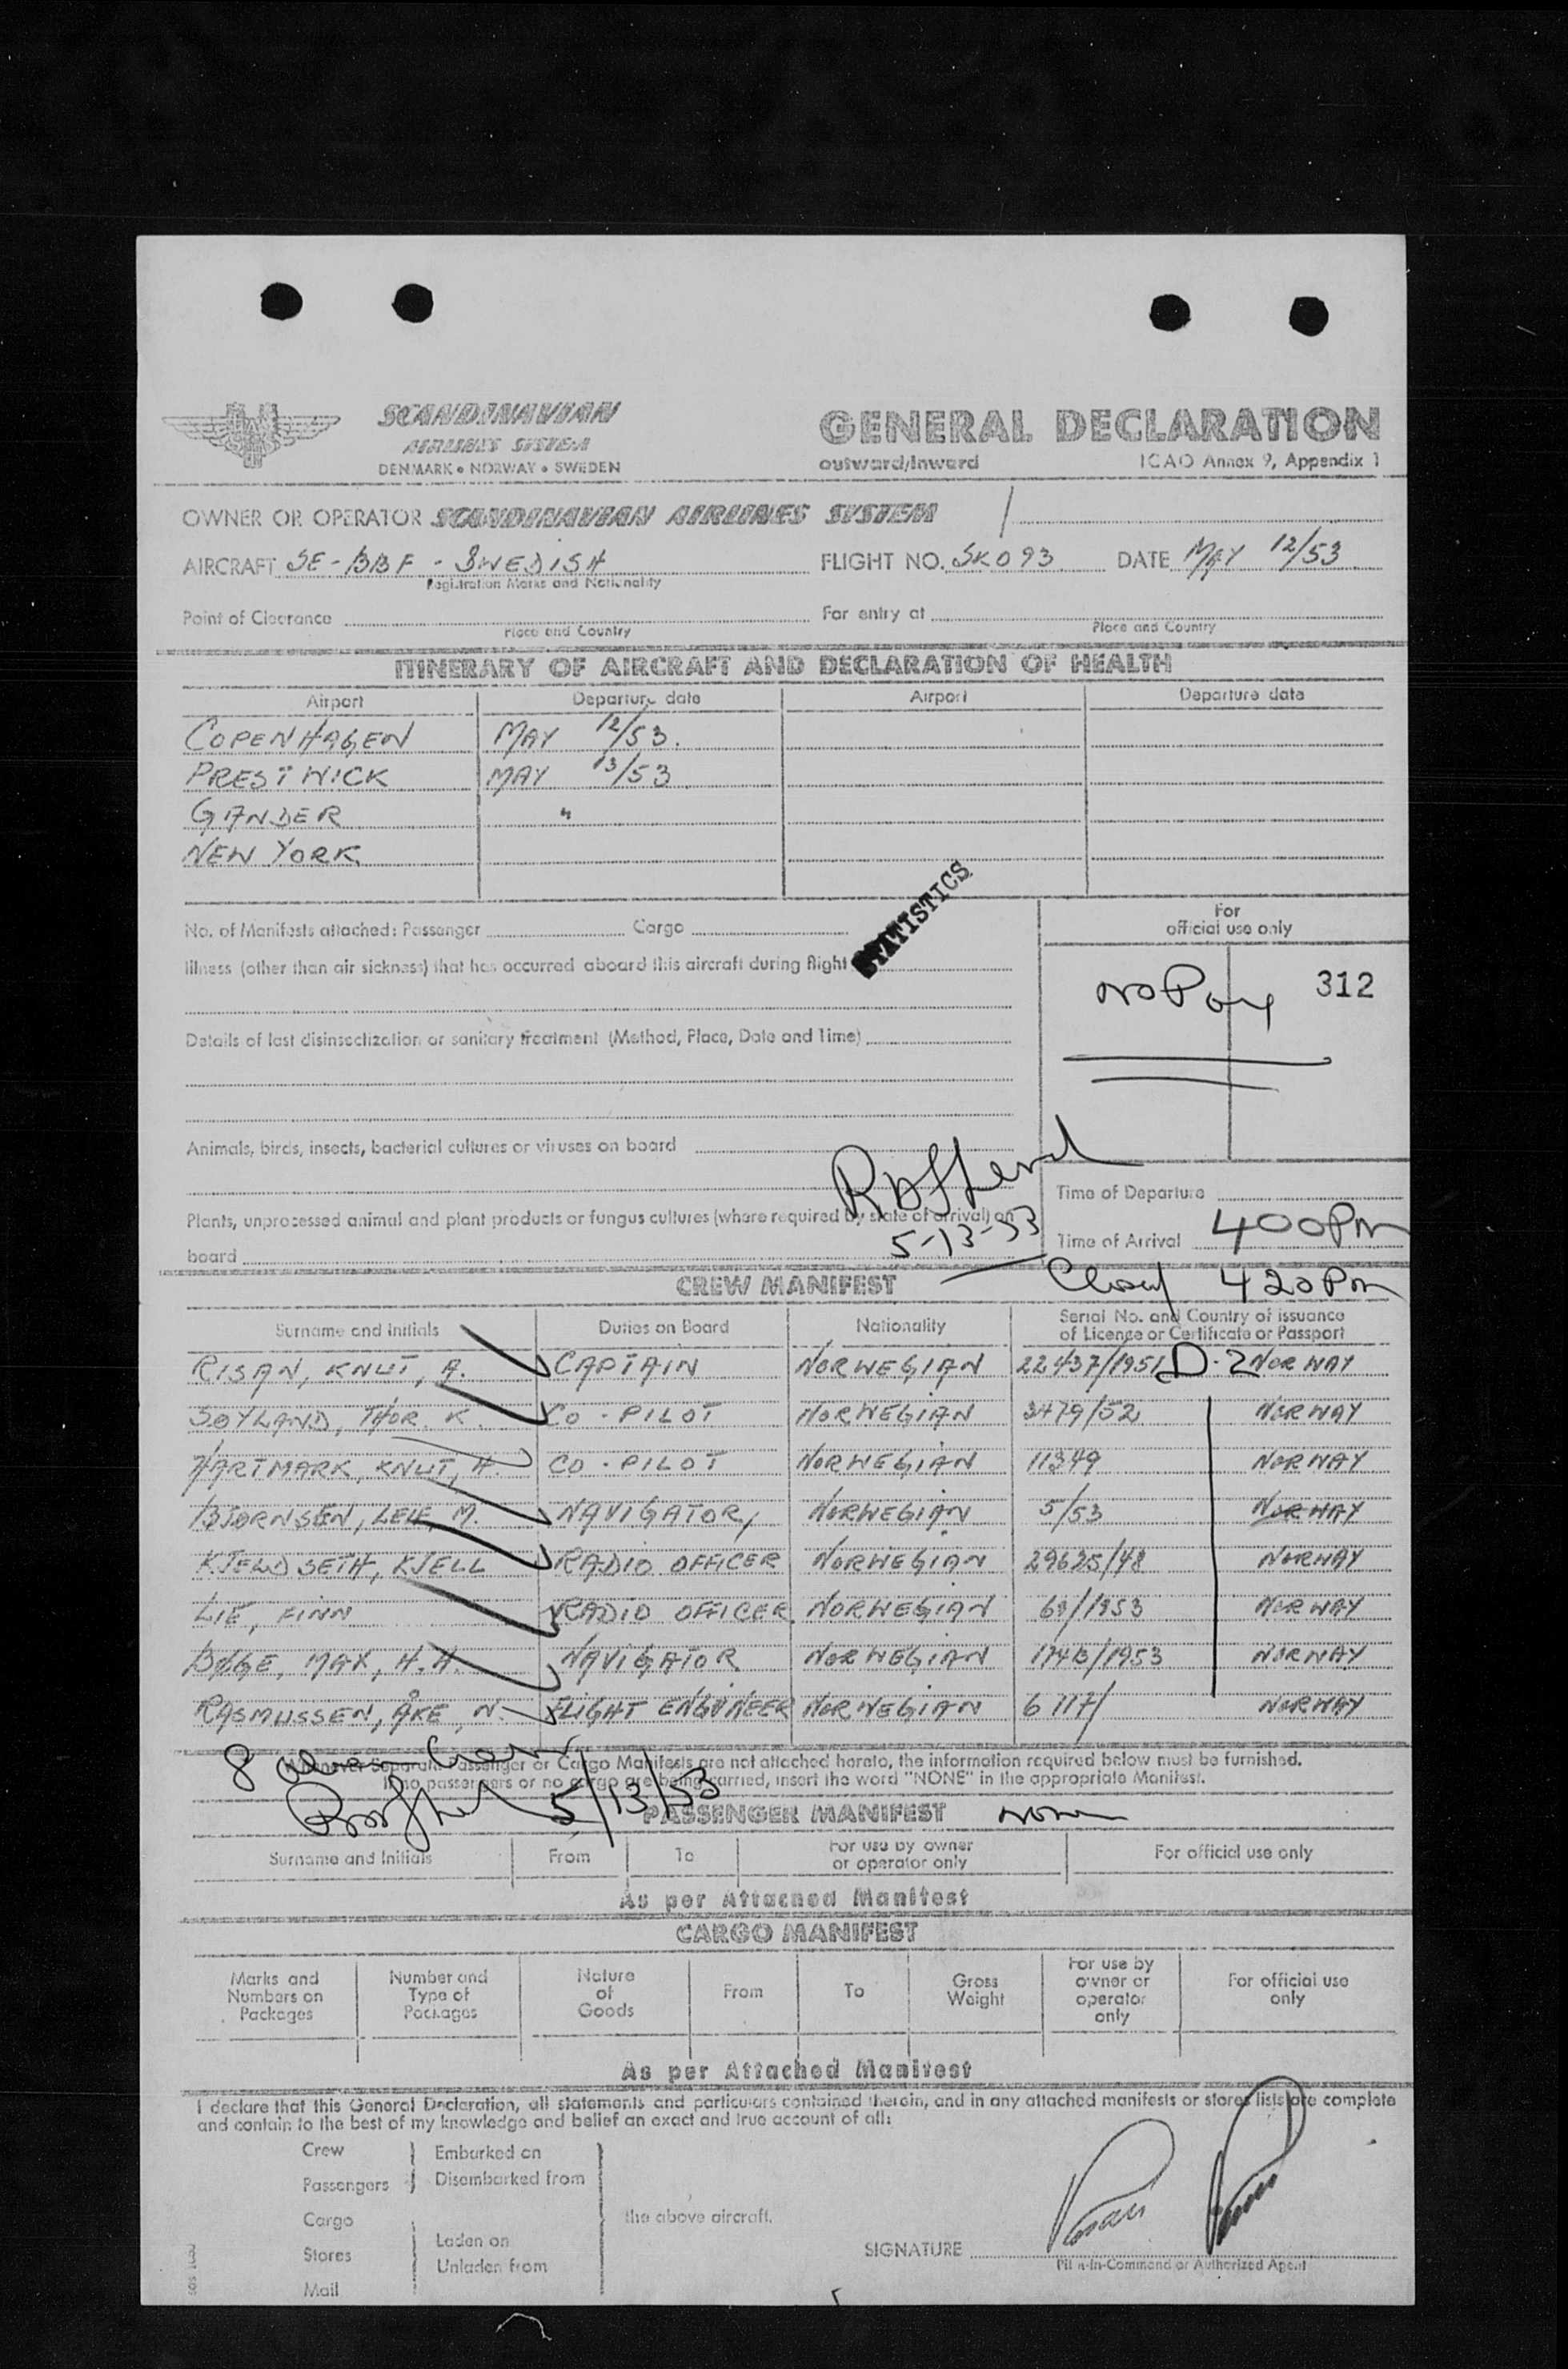 SCANDINAVIAN
AIRLINES SYSTEM
DENMARK • NORWAY • SWEDEN
GENERAL DECLARATION
outward/inward ICAO Annex 9, Appendix 1
OWNER OR OPERATOR SCANDINAVIAN AIRLINES SYSTEM
AIRCRAFT SE-BBF - SWEDISH FLIGHT NO. SK093 DATE MAY 12/53
Registration Marks and Nationality
Point of Clearance For entry at
Place and Country Place and Country
ITINERARY OF AIRCRAFT AND DECLARATION OF HEALTH
Airport Departure date Airport Departure date
COPENHAGEN MAY 12/53.
PRESTWICK MAY 13/53
GANDER "
NEW YORK
STATISTICS
No. of Manifests attached: Passenger Cargo
For
official use only
Illness (other than air sickness) that has occurred aboard this aircraft during flight
No Pay 312
Details of last disinsectization or sanitary treatment (Method, Place, Date and Time)
Animals, birds, insects, bacterial cultures or viruses on board
Time of Departure
Plants, unprocessed animal and plant products or fungus cultures (where required by state of arrival) on
board
5-13-53
Time of Arrival 400Pm
CREW MANIFEST
420Pm
Surname and Initials Duties on Board Nationality Serial No. and Country of issuance
of Licence or Certificate or Passport
RISAN, KNUT, A. CAPTAIN NORWEGIAN 22437/1951 D-2 NORWAY
SØYLAND, THOR. K. CO-PILOT NORWEGIAN 3479/52 NORWAY
HARTMARK, KNUT, H. CO-PILOT NORWEGIAN 11349 NORWAY
BJØRNSEN, LEIF, M. NAVIGATOR, NORWEGIAN 5/53 NORWAY
KJELDSETH, KJELL RADIO OFFICER NORWEGIAN 29625/48 NORWAY
LIE, FINN RADIO OFFICER NORWEGIAN 69/1953 NORWAY
BØGE, MAX, H.H. NAVIGATOR NORWEGIAN 1743/1953 NORWAY
RASMUSSEN, ÅKE, N. FLIGHT ENGINEER NORWEGIAN 6117/ NORWAY
8 alien crew
Whenever Separate Passenger or Cargo Manifests are not attached hereto, the information required below must be furnished.
If no passengers or no cargo are being carried, insert the word "NONE" in the appropriate Manifest.
5/13/53
PASSENGER MANIFEST None
Surname and Initials From To For use by owner
or operator only For official use only
As per Attached Manifest
CARGO MANIFEST
Marks and
Numbers on
Packages Number and
Type of
Packages Nature
of
Goods From To Gross
Weight For use by
owner or
operator
only For official use
only
As per Attached Manifest
I declare that this General Declaration, all statements and particulars contained therein, and in any attached manifests or stores lists are complete
and contain to the best of my knowledge and belief an exact and true account of all:
Crew Embarked on
Passengers Disembarked from
Cargo the above aircraft.
Stores Laden on
Unladen from
Mail
SIGNATURE
Pilot-in-Command or Authorized Agent